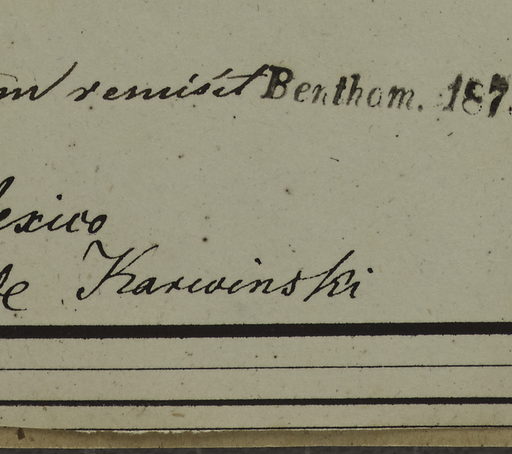 remisit Bentham. 187
exico
Karwinski